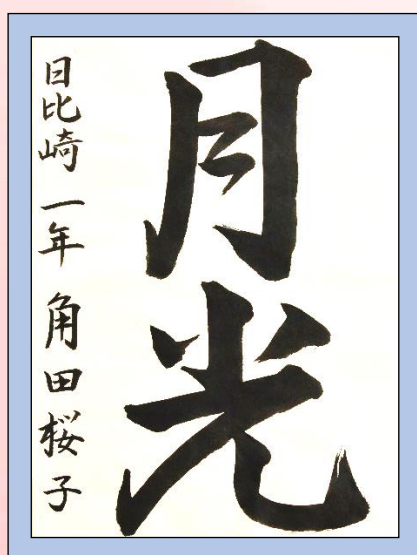 月光
日比崎 一年 角田桜子